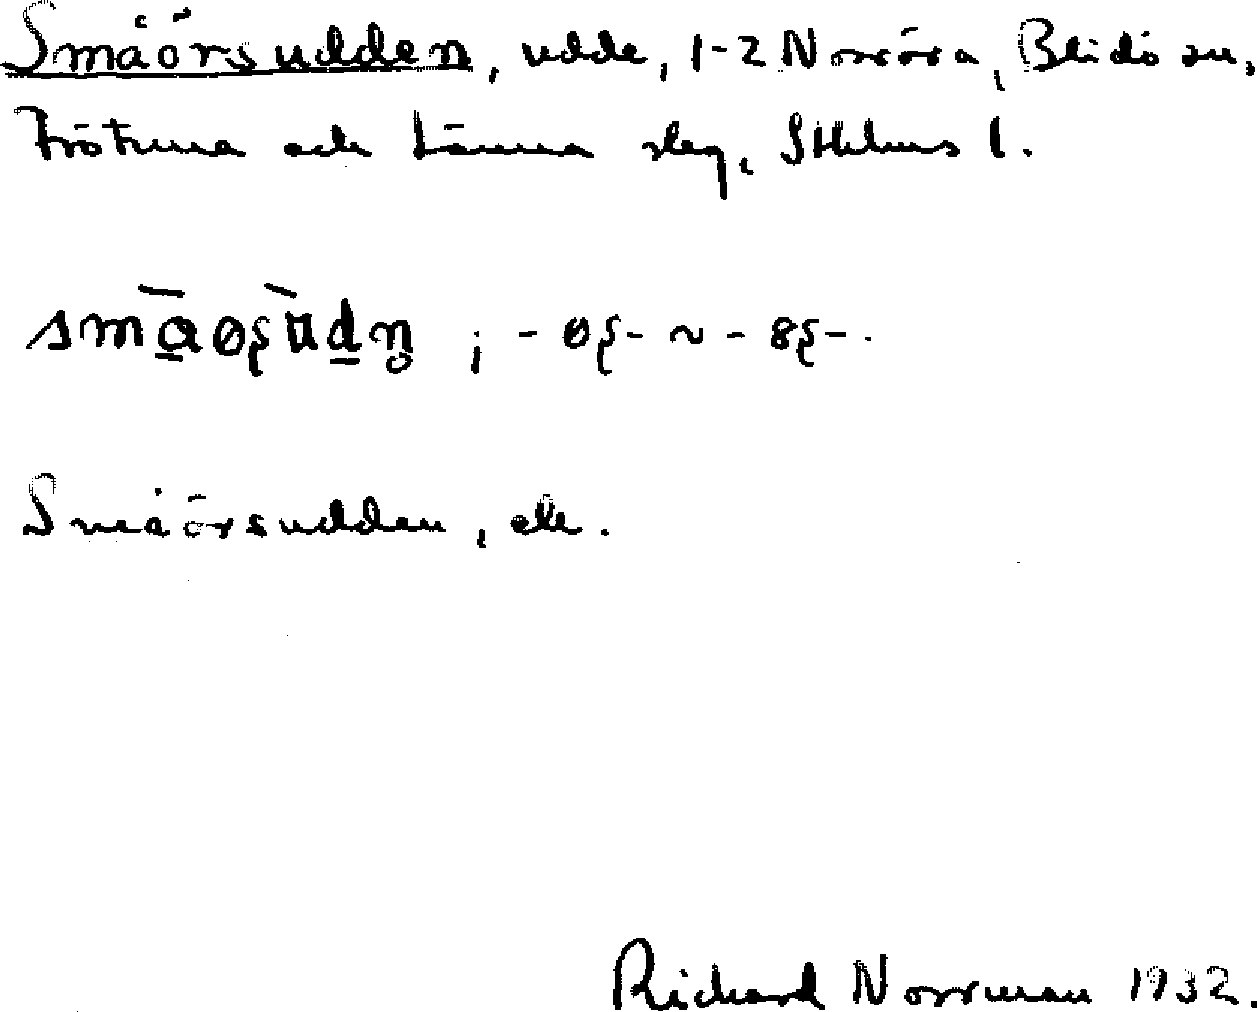 Småörsudden, udde, 1-2 Norröra, Blidö sn,
Frötuna och Länna skg, Sthlms l.
smāøʂùdn̥ ; -øʂ- ~ -8ʂ-.
Småörsudden, ele.
Richard Norrman 1932.